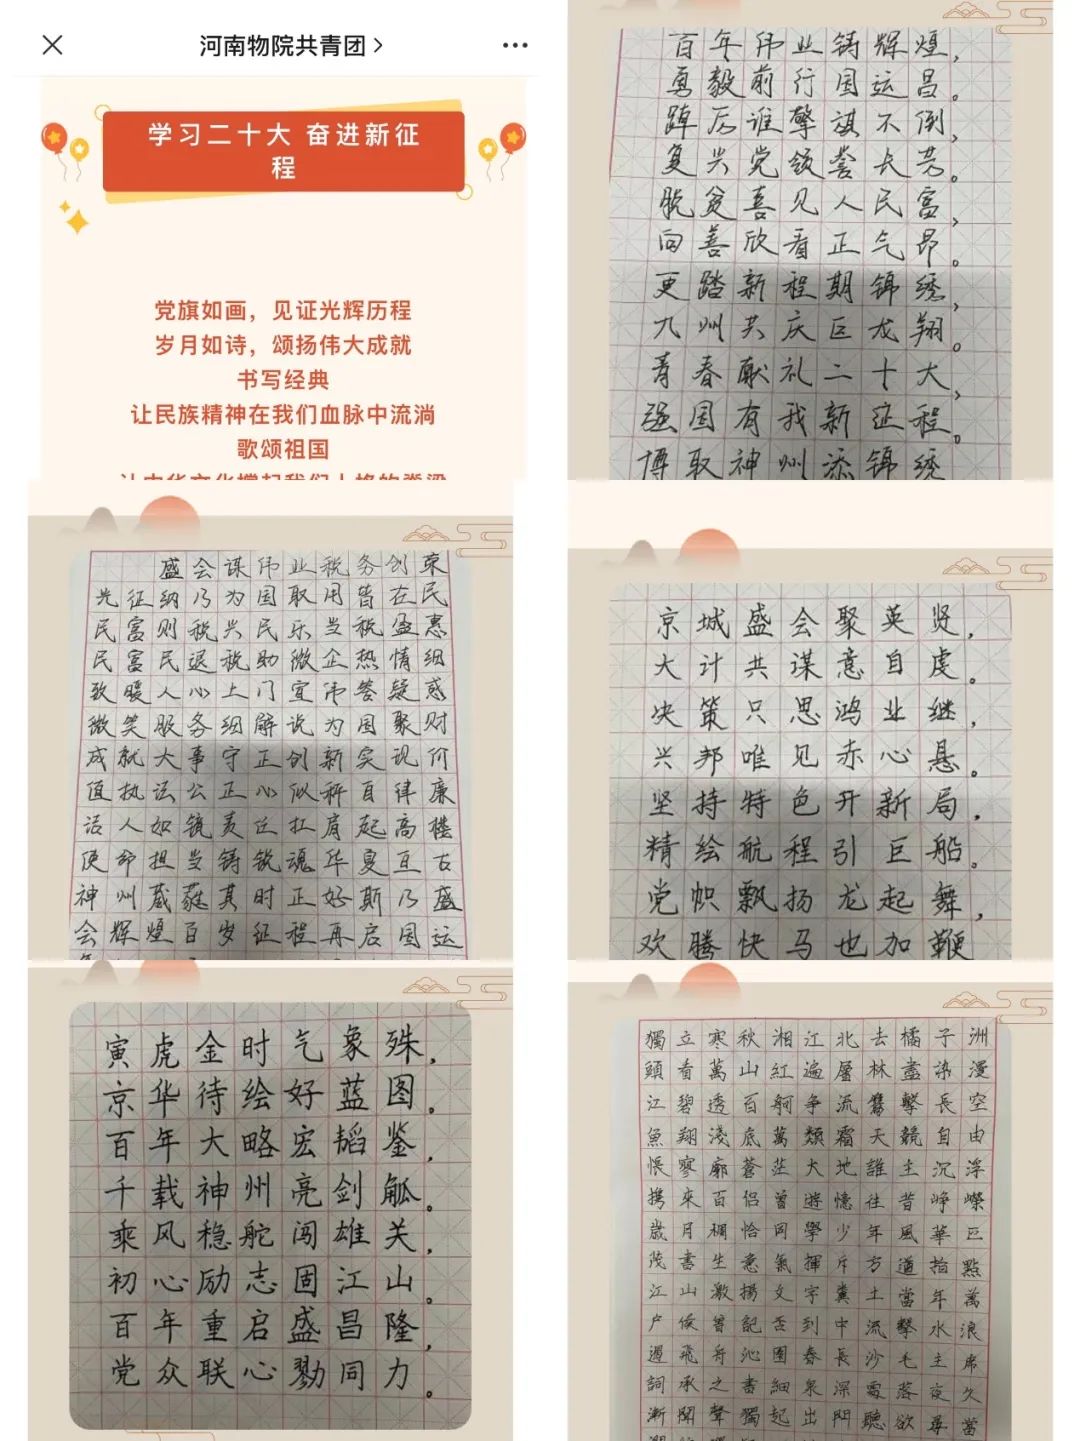 河南物院共青团 >
学习二十大 奋进新征
程
党旗如画，见证光辉历程
岁月如诗，颂扬伟大成就
书写经典
让民族精神在我们血脉中流淌
歌颂祖国
让中华文化撑起我们人格的脊梁
百年伟业铸辉煌，
勇毅前行国运昌。
踔厉谁擎旗不倒，
复兴党领誉长芳。
脱贫喜见人民富，
向善欣看正气昂。
更踏新程期锦绣，
九州共庆巨龙翔。
青春献礼二十大，
强国有我新征程。
博取神州添锦绣
盛会谋伟业税务创荣
光征纳乃为国取用皆在民
民富则税兴民乐当税盛惠
民富民退税助微企热情细
致暖人心上门宣传答疑惑
微笑服务细解说为国聚财
成就大事守正创新实现价
值执法公正心似秤自律廉
洁人如镜责任扛肩起高楼
使命担当铸锐魂华夏亘古
神州葳蕤其时正好斯乃盛
会辉煌百岁征程再启国运
京城盛会聚英贤，
大计共谋意自虔。
决策只思鸿业继，
兴邦唯见赤心悬。
坚持特色开新局，
精绘航程引巨船。
党帜飘扬龙起舞，
欢腾快马也加鞭
寅虎金时气象殊，
京华待绘好蓝图。
百年大略宏韬鉴，
千载神州亮剑觚。
乘风稳舵闯雄关，
初心励志固江山。
百年重启盛昌隆，
党众联心勠同力。
獨立寒秋湘江北去橘子洲
頭看萬山紅遍層林盡染漫
江碧透百舸爭流鷹擊長空
魚翔淺底萬類霜天競自由
悵寥廓蒼茫大地誰主沉浮
携來百侶曾遊憶往昔崢嶸
歲月稠恰同學少年風華正
茂書生意氣揮斥方遒指點
江山激揚文字糞土當年萬
户侯曾記否到中流擊水浪
遏飛舟沁園春長沙毛主席
詞承之書細泉深處落夜久
漸聞聲獨起出門聽欲尋當